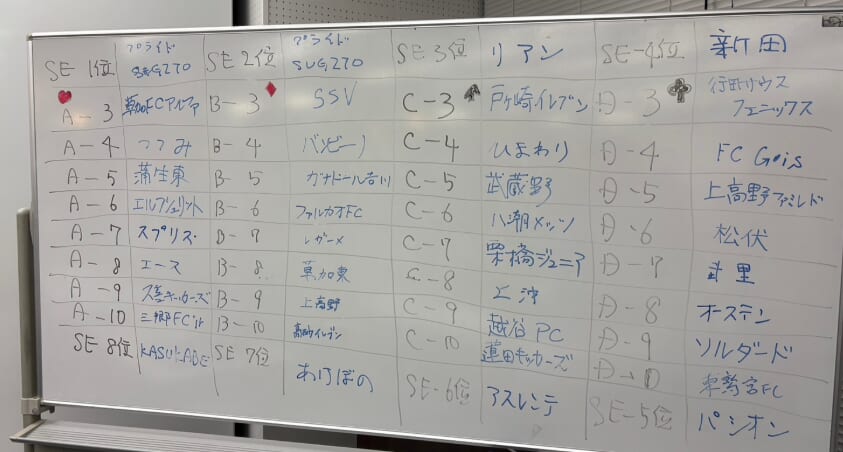 SE 1位 プライド SUG270 SE 2位 プライド SUG270 SE 3位 リアン SE-4位 新田
A-3 草加FCアルファ B-3 SSV C-3 戸ヶ崎イレブン D-3 行田サウス フェニックス
A-4 つつみ B-4 バンビーノ C-4 ひまわり D-4 FC Gois
A-5 蒲生東 B-5 ガナドール吉川 C-5 武蔵野 D-5 上高野ファミルド
A-6 エルブュリット B-6 ファルカオFC C-6 八潮メッツ D-6 松伏
A-7 スプリズ B-7 レガーメ C-7 栗橋ジュニア D-7 武里
A-8 エース B-8 草加東 C-8 上沖 D-8 オーステン
A-9 キッカーズ B-9 上高野 C-9 越谷PC D-9 ソルダード
A-10 三郷FC B-10 イレブン C-10 蓮田キッカーズ D-10 東鷲宮FC
SE 8位 KASUKABE SE 7位 あけぼの SE-6位 アスレンテ SE-5位 パシオン